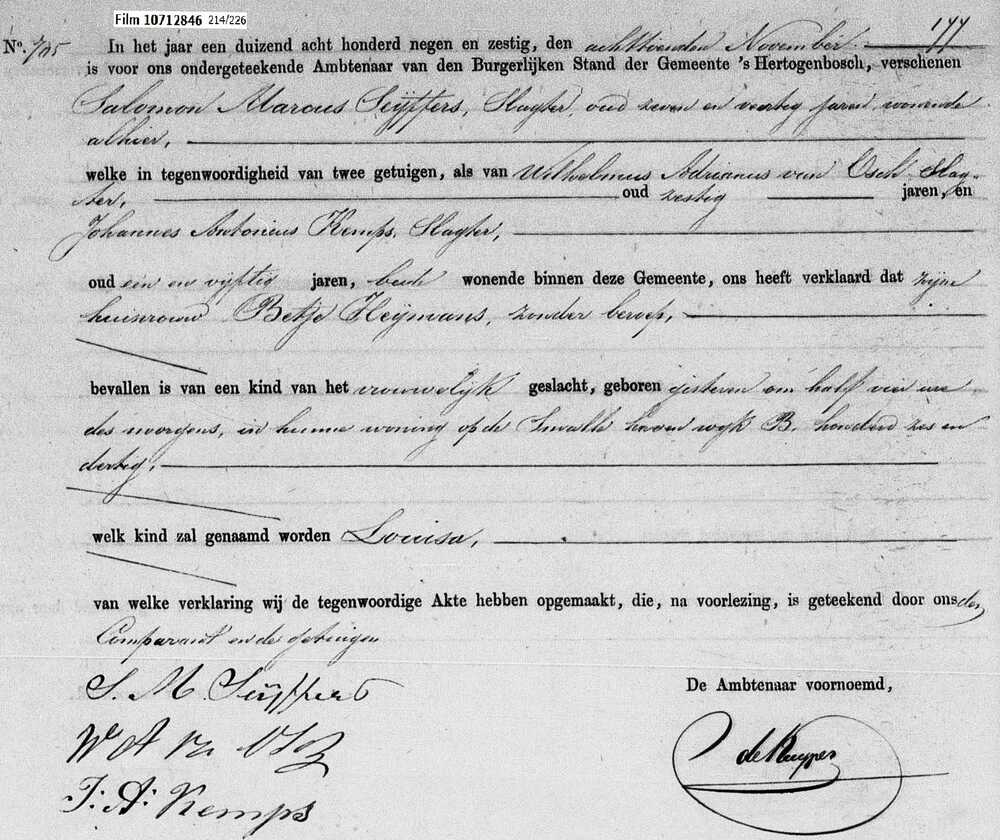 Film 10712846 214/226
177
No. 795 In het jaar een duizend acht honderd negen en zestig, den achttienden November
is voor ons ondergeteekende Ambtenaar van den Burgerlijken Stand der Gemeente 's Hertogenbosch, verschenen
Salomon Marcus Seijffers, Slagter, oud zeven en veertig jaren, wonende
alhier,
welke in tegenwoordigheid van twee getuigen, als van Wilhelmus Adrianus van Osch Slag-
ter, oud zestig jaren, en
Johannes Antonius Kemps, Slagter,
oud een en vijftig jaren, beide wonende binnen deze Gemeente, ons heeft verklaard dat zijne
huisvrouw Betje Heijmans, zonder beroep,
bevallen is van een kind van het vrouwelijk geslacht, geboren gisteren om half vier ure
des morgens, in hunne woning op de Smalle haven wijk B. honderd zes en
dertig,
welk kind zal genaamd worden Louisa,
van welke verklaring wij de tegenwoordige Akte hebben opgemaakt, die, na voorlezing, is geteekend door ons den
Comparant en de getuigen
S. M. Seijffers
De Ambtenaar voornoemd,
W A v
de Kuyper
J. A. Kemps